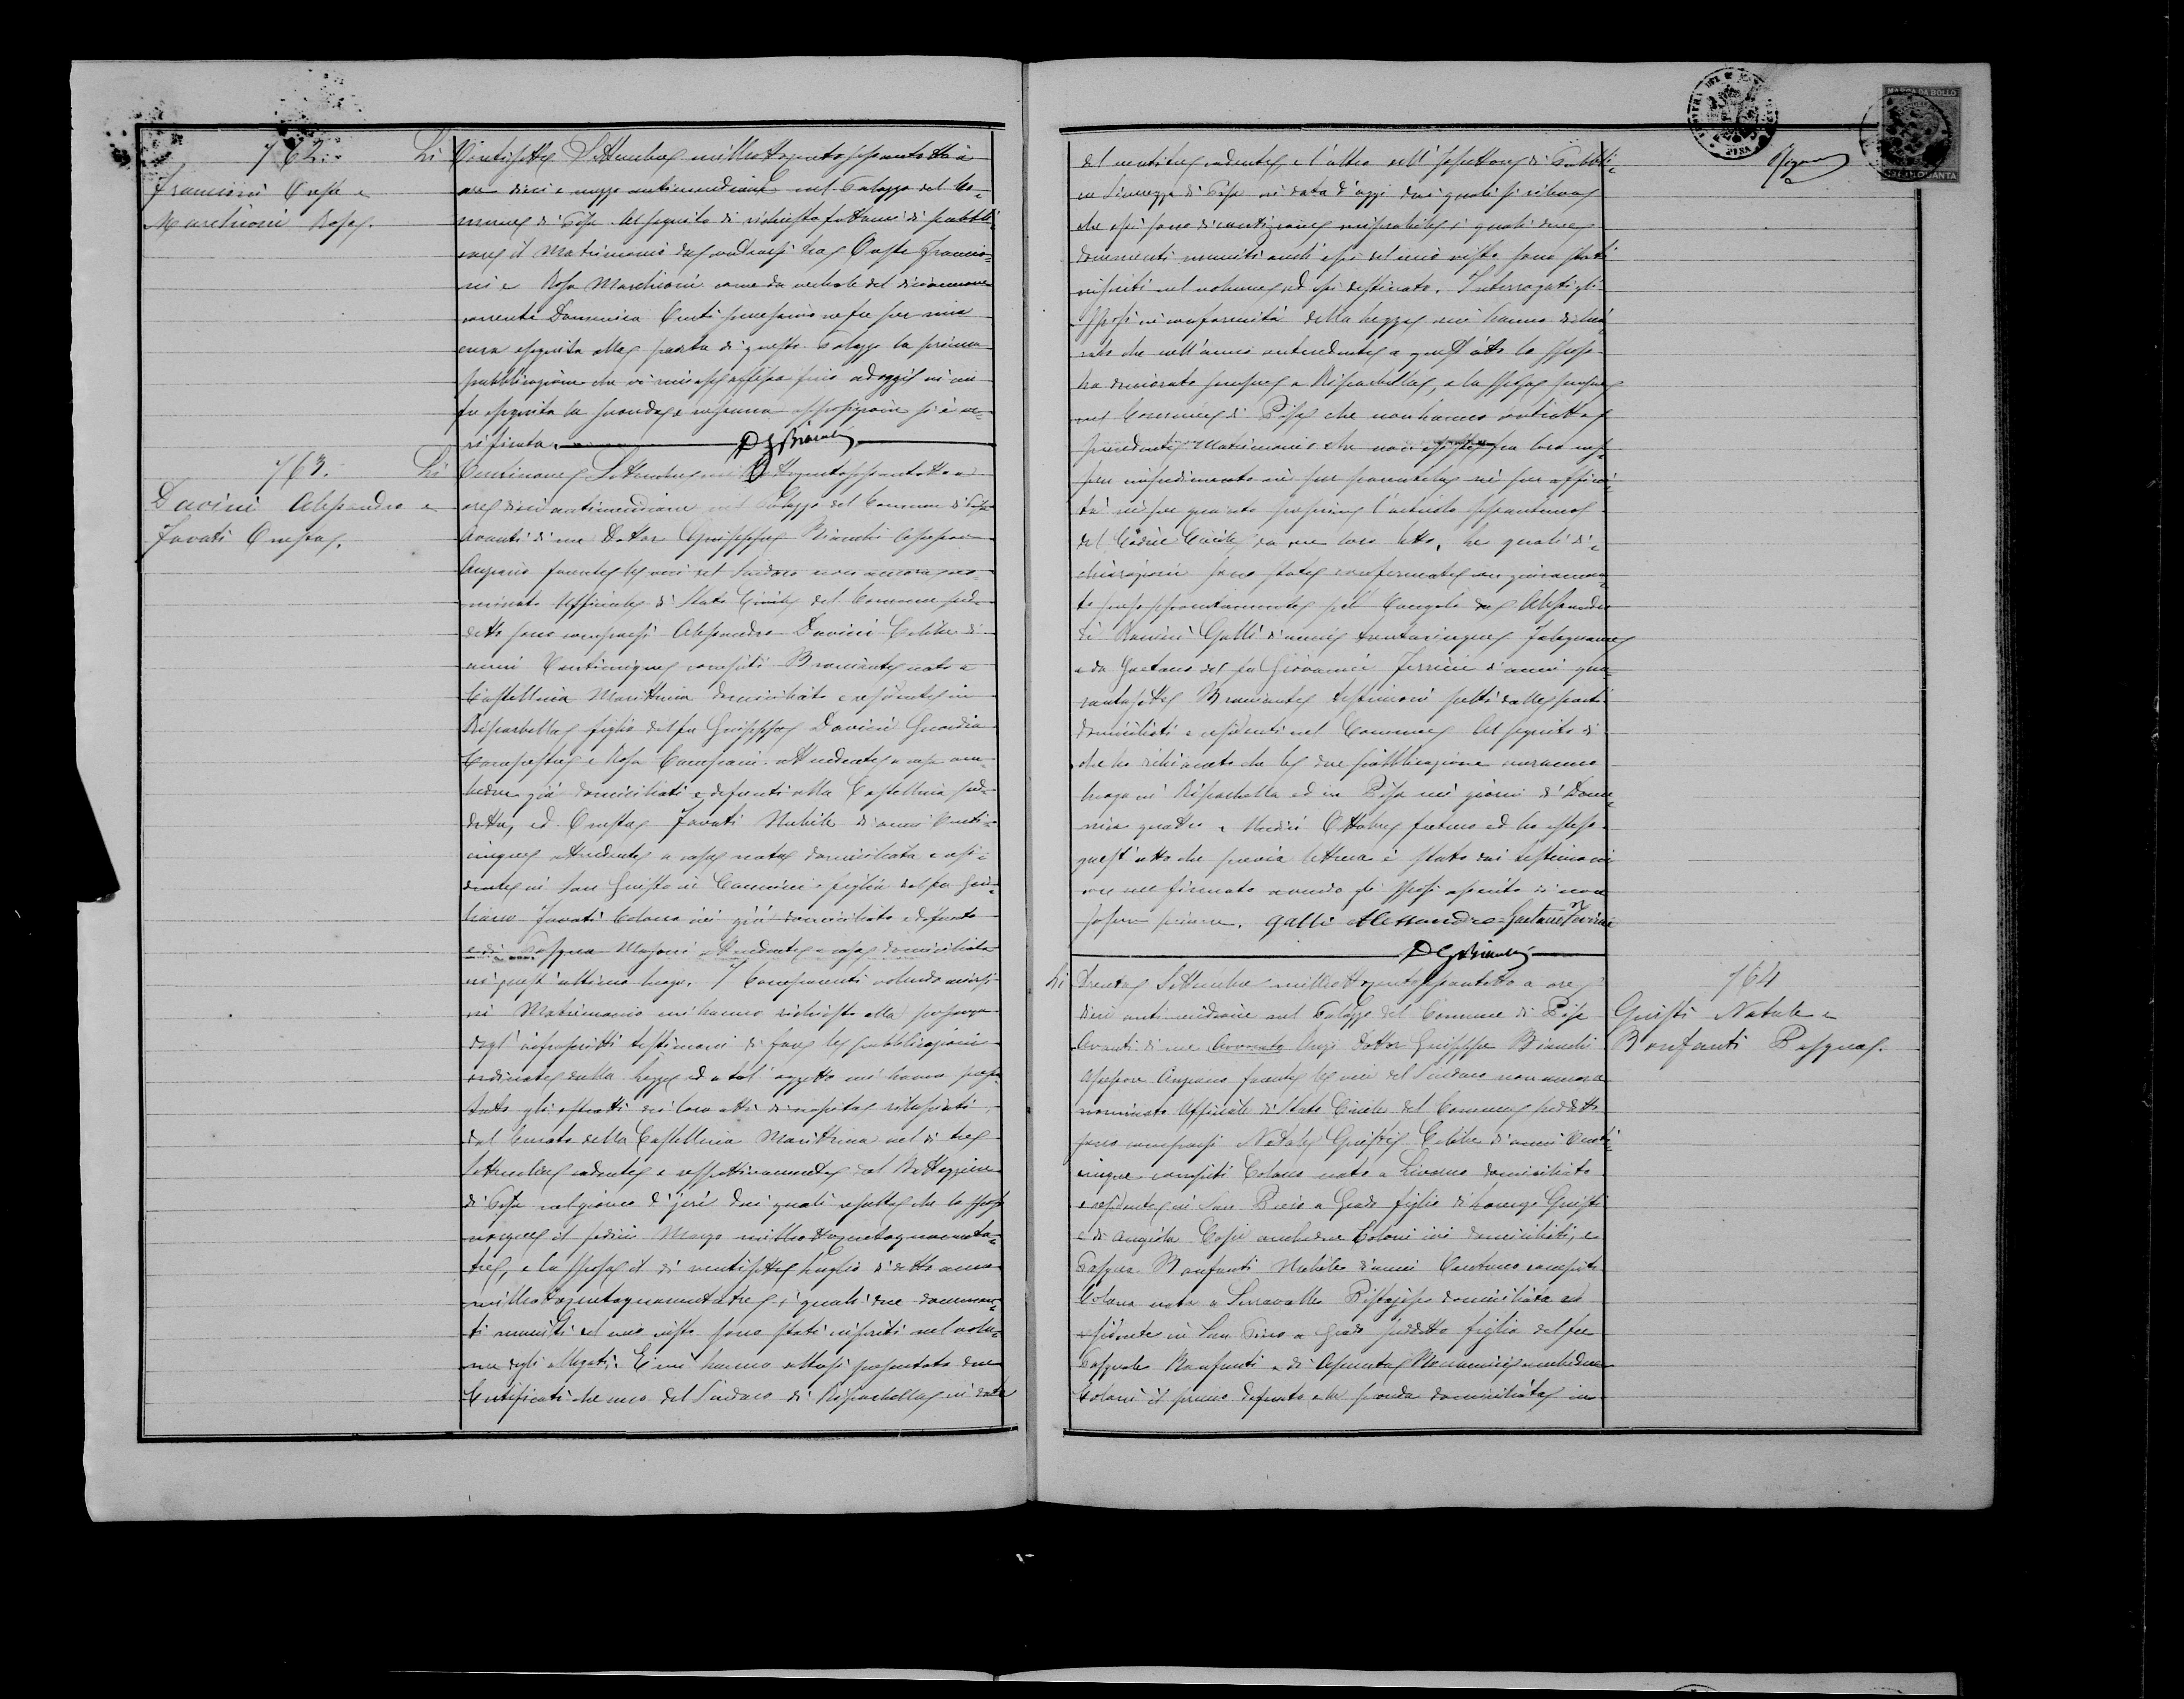 762.
Francioni Oreste e
Marchioni Rosa.
Li Ventisette Settembre milleottocentosessantotto a
ore dieci e mezzo antimeridiane nel Palazzo del Co=
mune di Pisa. Al seguito di richiesta fattami di pubbli
care il Matrimonio da contrarsi tra Oreste Francio=
ni e Rosa Marchioni come da verbale del diciannove
corrente Domenica Venti mese fu per mia
cura eseguita alla porta di questo Palazzo la prima
pubblicazione che vi rimase affissa fino ad oggi in cui
fu eseguita la seconda e nessuna opposizione si è ve=
rificata. D G Bianchi
763.
Davini Alessandro e
Favati Oresta.
Li Ventinove Settembre milleottocentosessantotto a
ore dieci antimeridiane nel Palazzo del Comune di Pisa
Avanti di me Dottor Giuseppe Bianchi Assessore
Anziano facente le veci del Sindaco non ancora no=
minato Uffiziale di Stato Civile del Comune sud=
detto sono comparsi Alessandro Davini Celibe di
anni Venticinque compiti Bracciante nato a
Castellina Marittima domiciliato e residente in
Riparbella figlio del fu Giuseppe Davini Guardia
Campestre e Rosa Campani attendente a casa am=
bedue già domiciliati e defunti alla Castellina sud=
detta, ed Oresta Favati Nubile di anni Venti=
cinque attendente a casa nata domiciliata e resi=
dente in San Giusto in Cannicci figlia del fu Giu=
liano Favati Colono ivi già domiciliato e defunto
e di Pasqua Masoni attendente a casa domiciliata
in quest'ultimo luogo. I Comparenti volendo unirsi
in Matrimonio mi hanno richiesto alla presenza
degl'infrascritti testimoni di fare le pubblicazioni
ordinate dalla Legge ed a tal'oggetto mi hanno presen
tato gli estratti dei loro atti di nascita rilasciati
dal Curato della Castellina Marittima nel dì tre
Settembre cadente e respettivamente dal Battezziere
di Pisa nel giorno d'jeri dai quali resulta che lo sposo
nacque il sedici Marzo milleottocentoquaranta=
tre, e la sposa il dì ventisette Luglio di detto anno
milleottocentoquarantatre, i quali due documen=
ti muniti del mio visto sono stati inseriti nel volu=
me degli allegati. E mi hanno altresì presentato due
Certificati che uno del Sindaco di Riparbella in data
del ventitre cadente, e l'altro dell'Ispettore di Pubbli=
ca Sicurezza di Pisa in data d'oggi dai quali si rileva
che essi sono di condizione miserabile, i quali due
documenti muniti anch'essi del mio visto sono stati
inseriti nel volume ad essi destinato. Interrogati gli
Sposi in conformità della Legge mi hanno dichia
rato che nell'anno antecedente a quest'atto lo sposo
ha dimorato sempre a Riparbella, e la sposa sempre
nel Comune di Pisa che non hanno contratto
precedenti Matrimoni e che non esiste fra loro nes=
sun impedimento nè per parentela nè per affini=
tà nè per quanto prescrive l'articolo sessantanove
del Codice Civile da me loro letto. Le quali di=
chiarazioni sono state confermate con giuramen=
to separatamente dall' Alessandro
di Ranieri Galli d'anni trentacinque Falegname
e da Gaetano del fu Giovanni Ferrini d'anni qua=
rantasette Bracciante testimoni scelti dalle parti
domiciliati e residenti nel Comune. Al seguito di
che ho dichiarato che le due pubblicazione avranno
luogo in Riparbella ed in Pisa nei giorni di Dome=
nica quattro e Undici Ottobre futuro ed ho esteso
quest'atto che previa lettura è stato dai testimoni
con me firmato avendo gli sposi asserito di non
saper scrivere. Galli Alessandro = Gaetano Ferrini
D G Bianchi
Li Trenta Settembre milleottocentosessantotto a ore
dieci antimeridiane nel Palazzo del Comune di Pisa
Avanti di me Avvocato Anzi Dottor Giuseppe Bianchi
Assessore Anziano facente le veci del Sindaco non ancora
nominato Uffiziale di Stato Civile del Comune suddetto
sono comparsi Natale Giusti Celibe d'anni Venti=
cinque compiti Colono nato a Livorno domiciliato
e residente in San Piero a Grado figlio di Lorenzo Giusti
e di Angiola Cosci ambedue Coloni ivi domiciliati, e
Pasqua Bonfanti Nubile d'anni Ventuno compiti
Colona nata a Serravalle Pistojese domiciliata ed
residente in San Piero a Grado suddetto figlia del fu
Pasquale Bonfanti e di Assunta ambedue
Coloni il primo defunto e la seconda domiciliata in
764
Giusti Natale e
Bonfanti Pasqua.
MARCA DA BOLLO
PISA